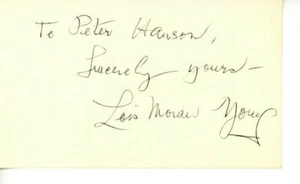 To Peter Hanson,
Sincerely yours –
Lois Moran Young